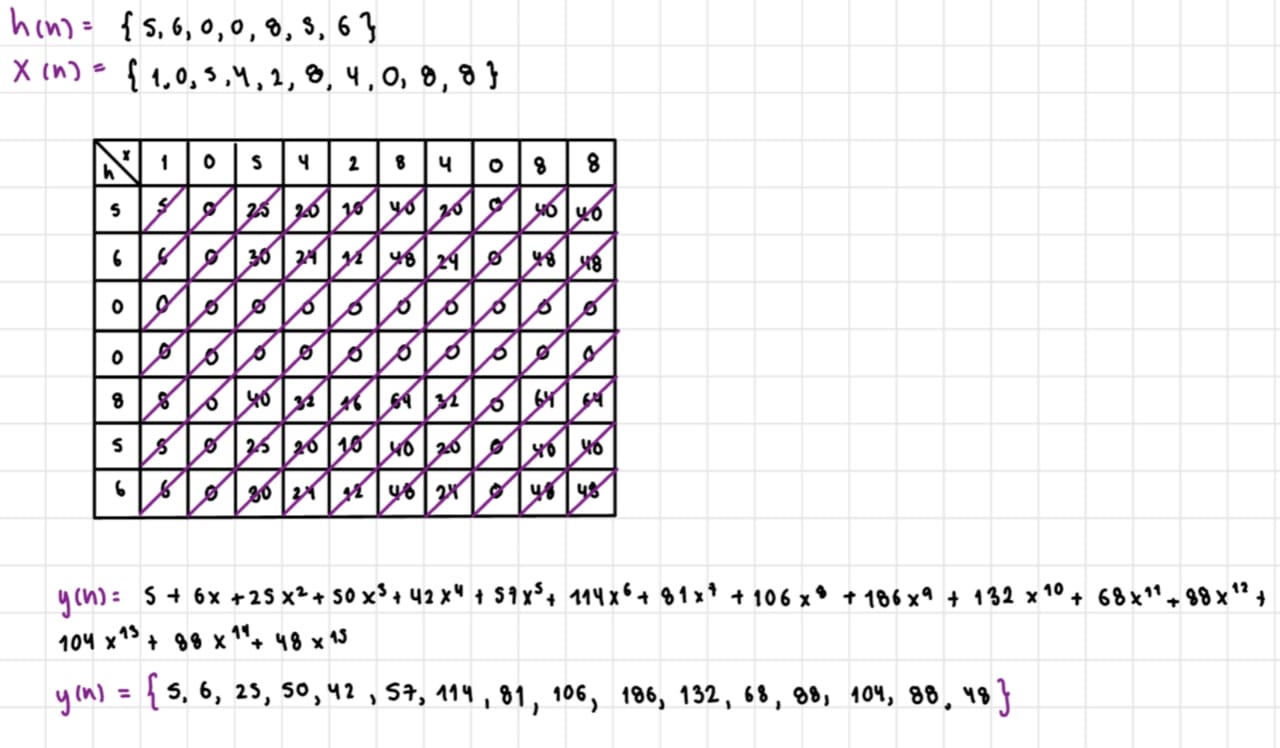 h(n) = { 5, 6, 0, 0, 8, 5, 6 }
X(n) = { 1, 0, 5, 4, 2, 8, 4, 0, 8, 8 }
h x 1 0 5 4 2 8 4 0 8 8
5 5 0 25 20 10 40 20 0 40 40
6 6 0 30 24 12 48 24 0 48 48
0 0 0 0 0 0 0 0 0 0 0
0 0 0 0 0 0 0 0 0 0 0
8 8 0 40 32 16 64 32 0 64 64
5 5 0 25 20 10 40 20 0 40 40
6 6 0 30 24 12 48 24 0 48 48
y(n) = 5 + 6x + 25x² + 50x³ + 42x⁴ + 57x⁵ + 114x⁶ + 81x⁷ + 106x⁸ + 186x⁹ + 132x¹⁰ + 68x¹¹ + 88x¹² +
104x¹³ + 88x¹⁴ + 48x¹⁵
y(n) = { 5, 6, 25, 50, 42, 57, 114, 81, 106, 186, 132, 68, 88, 104, 88, 48 }